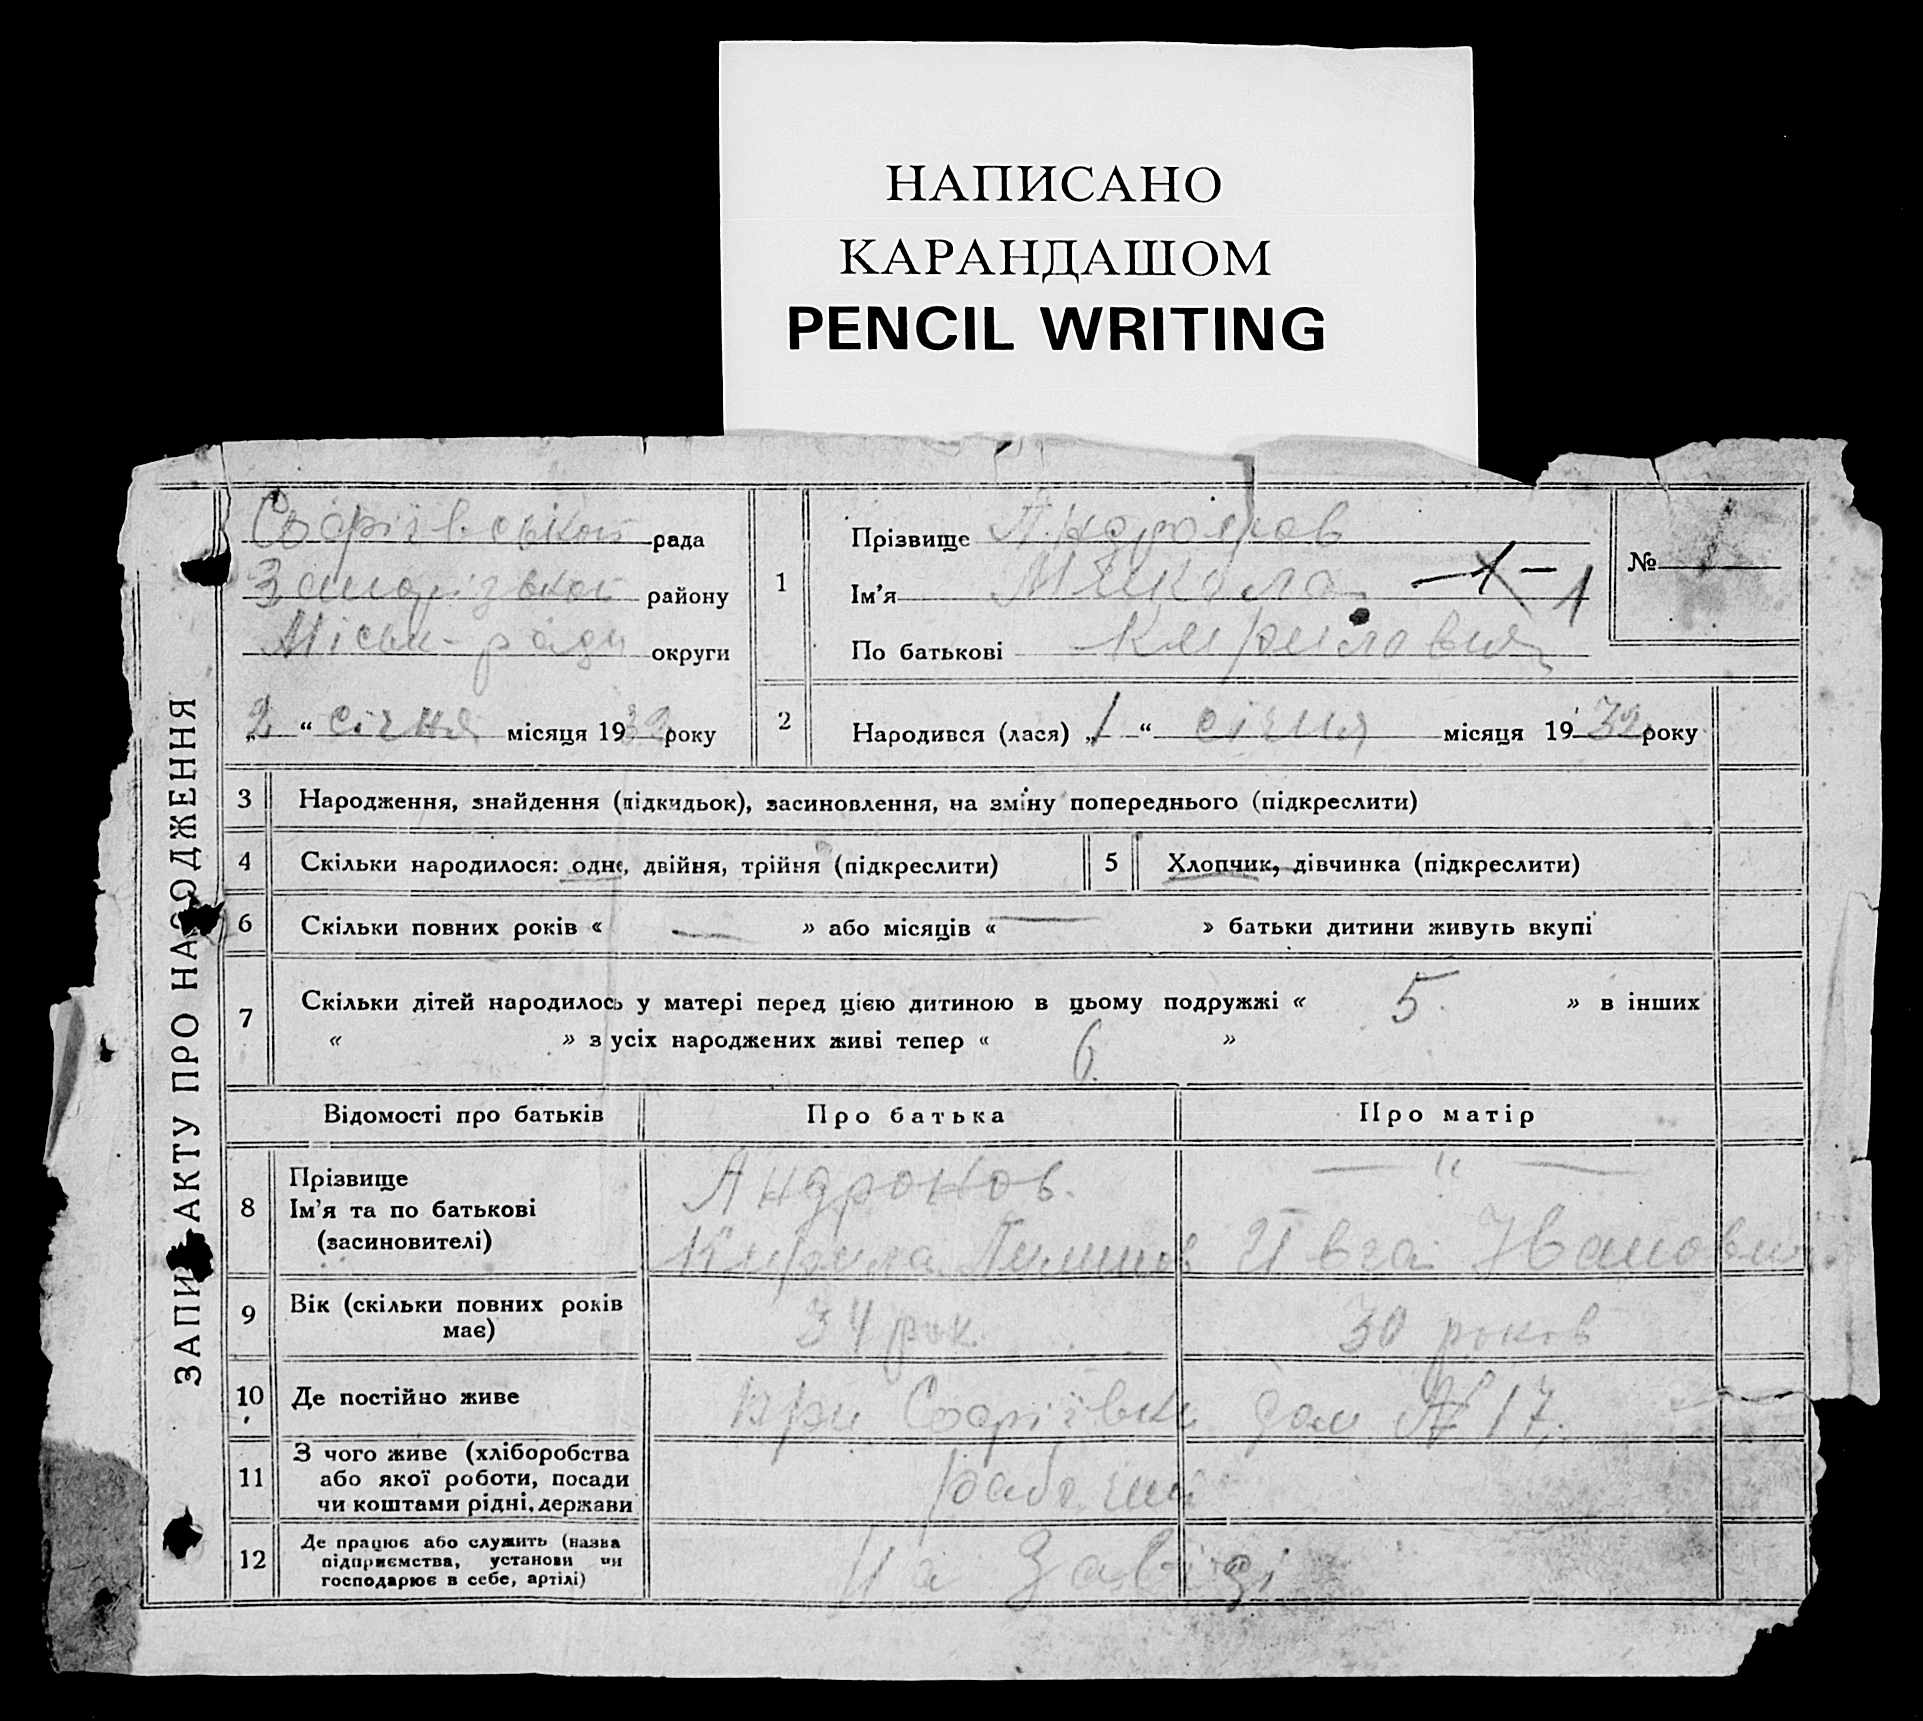 НАПИСАНО
КАРАНДАШОМ
PENCIL WRITING
ЗАПИ АКТУ ПРО НАРОДЖЕННЯ
Софіївської рада
Запорізької району
Міськ-ради округи
„2“ січня місяця 1932 року
1
Прізвище Андронов
Ім'я Микола —1— 1
По батькові Кирилович
№ 1
2
Народився (лася) „1“ січня місяця 1932 року
3 Народження, знайдення (підкидьок), засиновлення, на зміну попереднього (підкреслити)
4 Скільки народилося: одне, двійня, трійня (підкреслити)
5 Хлопчик, дівчинка (підкреслити)
6 Скільки повних років « — » або місяців « — » батьки дитини живуть вкупі
7 Скільки дітей народилось у матері перед цією дитиною в цьому подружжі « 5 » в інших
« » з усіх народжених живі тепер « 6 »
Відомості про батьків Про батька Про матір
8 Прізвище
Ім'я та по батькові
(засиновителі)
Андронов.
Кирила
— „ —
Ивга Иванов
9 Вік (скільки повних років
має)
34 рок 30 років
10 Де постійно живе при Софіївки дом № 17.
11 З чого живе (хліборобства
або якої роботи, посади
чи коштами рідні, держави
рабочий
12 Де працює або служить (назва
підприємства, установи чи
господарює в себе, артілі)
На Заводі